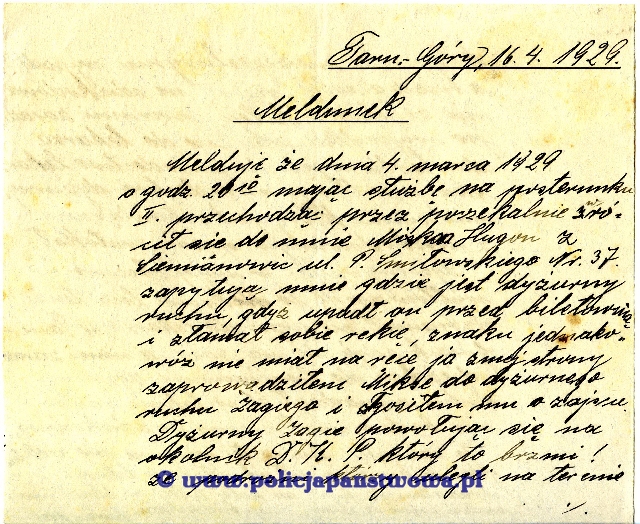 Tarn.-Góry, 16.4.1929.
Meldunek
Melduję że dnia 4. marca 1929
o godz. 20 10 mając służbę na posterunku
II. przechodząc przez poczekalnie zwró-
cił się do mnie Miksa Hugon z
Siemianowic ul. P. Śmiłowskiego Nr. 37
zapytując mnie gdzie jest dyżurny
ruchu, gdyż upadł on przed biletownią
i złamał sobie rekie, znaku jednako-
wóż nie miał na rece ja z mej strony
zaprowadziłem Mikse do dyżurnego
ruchu Zagiego i prosiłem mu o zapis.
Dyżurny Zagie powołując się na
okolnik D. K. P. który to brzmi!
że który uległ na terenie
./.
© www.policjapanstwowa.pl